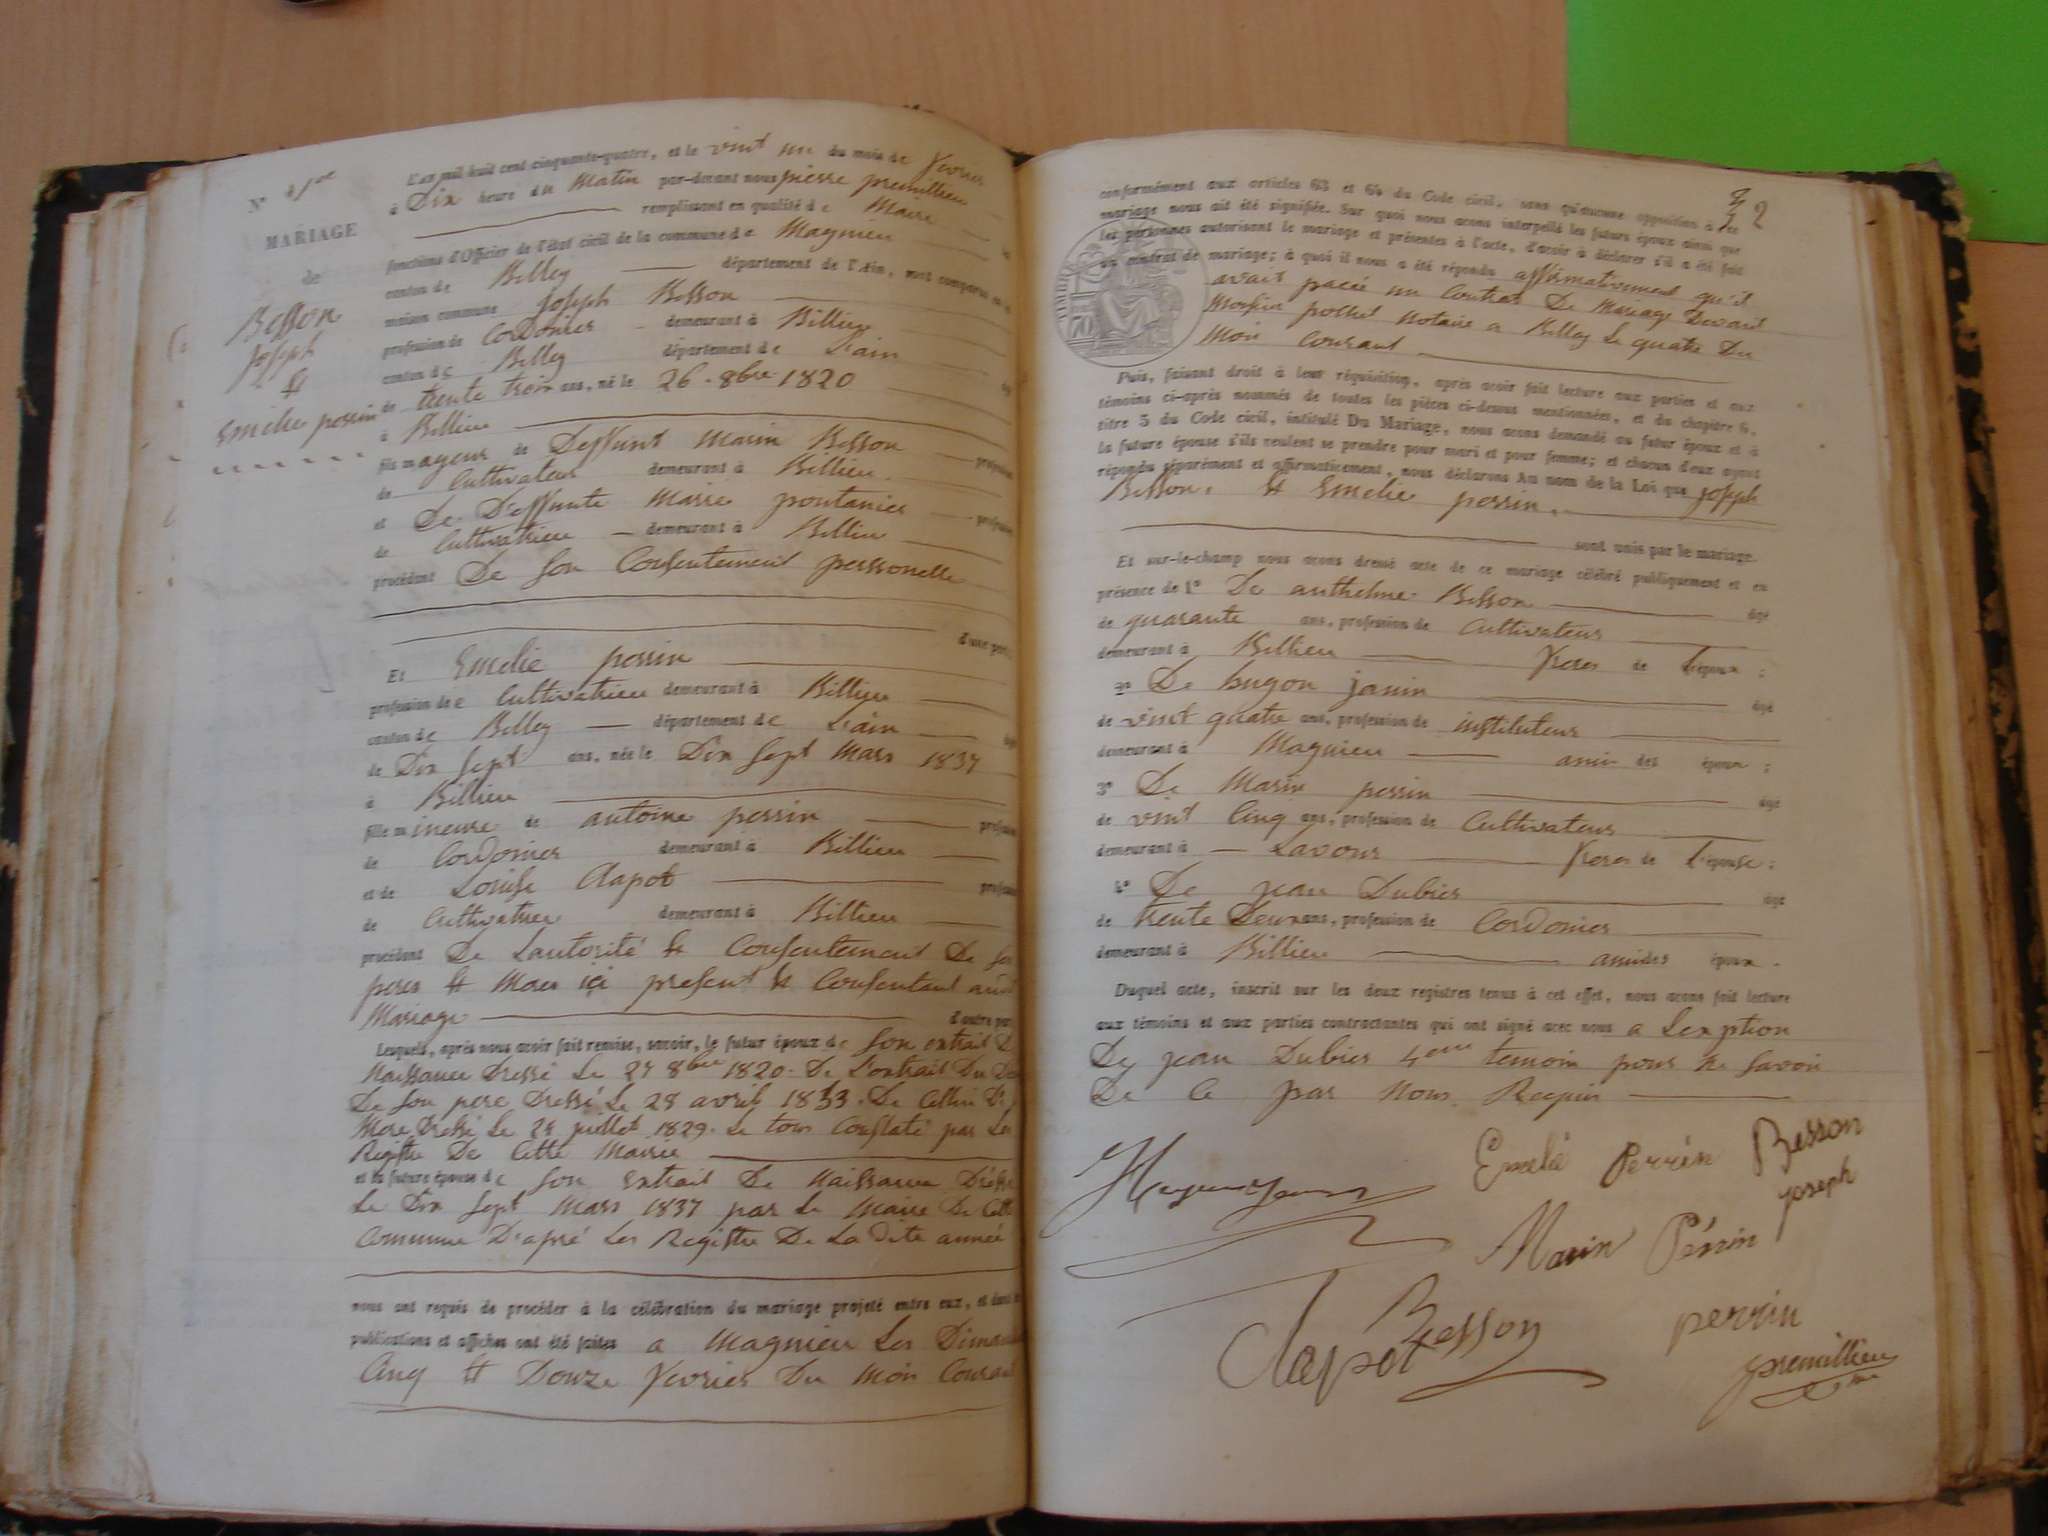 N°
MARIAGE
de
Besson
joseph
et
Emelie perrin
L'an mil huit cent cinquante-quatre, et le vint une du mois de fevrier
à Dix heure du Matin par-devant nous pierre premillieu
remplissant en qualité de Maire
fonctions d'Officier de l'état civil de la commune de Magnieu
canton de Belley département de l'Ain, sont comparus en la
maison commune joseph Besson
profession de Cordonier demeurant à Billieu
canton de Belley département de L'ain
de trente trois ans, né le 26 . 8bre 1820
à Billieu
fils majeur de Deffunt Marin Besson profession
de Cultivateur demeurant à Billieu
et De Deffunte Marie pontanier profession
de Cultivatrieu demeurant à Billieu
procédant De son Consentement perssonelle
d'une part;
Et Emelie perrin
profession de Cultivatrieu demeurant à Billieu
canton de Belley département de L'ain
de Dix sept ans, née le Dix sept Mars 1837
à Billieu
fille mineure de antoine perrin profession
de Cordonier demeurant à Billieu
et de Louise Clapot profession
de Cultivatrieu demeurant à Billieu
procédant De Lautorité et Consentement De ses
peres et Meres içi présent et Consentant audit
Mariage d'autre part
Lesquels, après nous avoir fait remise, savoir, le futur époux de son extrait De
Naissance Dressé Le 27 8bre 1820 . De L'extrait Du
De son pere Dressé Le 28 avril 1833 . De Cellui De
Mere Dressé Le 24 juillet 1829 . Le tous Constaté par Les
Registre De Cette Mairie
et la future épouse de son Extrait De Naissance Dréssé
Le Dix sept Mars 1837 par Le Maire De Cette
Commune D'apré Les Registre De La dite année
nous ont requis de procéder à la célébration du mariage projeté entre eux, et dont les
publications et affiches ont été faites a Magnieu Les Dimanche
Cinq et Douze fevrier Du Mois Courant
conformément aux articles 63 et 64 du Code civil, sans qu'aucune opposition à ce
mariage nous ait été signifiée. Sur quoi nous avons interpellé les futurs époux ainsi que
les personnes autorisant le mariage et présentes à l'acte, d'avoir à déclarer s'il a été fait
un contrat de mariage; à quoi il nous a été répondu affirmativement qu'il
avait pacée un Contrat De Mariage Devant
Monsieur pochet Notaire a Belley Le quatre Du
Mois Courant
Puis, faisant droit à leur réquisition, après avoir fait lecture aux parties et aux
témoins ci-après nommés de toutes les pièces ci-dessus mentionnées, et du chapitre 6,
titre 5 du Code civil, intitulé Du Mariage, nous avons demandé au futur époux et à
la future épouse s'ils veulent se prendre pour mari et pour femme; et chacun d'eux ayant
répondu séparément et affirmativement, nous déclarons Au nom de la Loi que joseph
Besson . et Emelie perrin .
sont unis par le mariage.
Et sur-le-champ nous avons dressé acte de ce mariage célébré publiquement et en
présence de 1° De anthelme Besson âgé
de quarante ans, profession de Cultivateur
demeurant à Billieu freres de L'époux ;
2° De hugon janin âgé
de vint quatre ans, profession de instituteur
demeurant à Magnieu amis des époux ;
3° De Marin perrin âgé
de vint Cinq ans, profession de Cultivateur
demeurant à Lavour freres de L'épouse ;
4° De jean Dubier âgé
de trente Deux ans, profession de Cordonier
demeurant à Billieu amis des époux .
Duquel acte, inscrit sur les deux registres tenus à cet effet, nous avons fait lecture
aux témoins et aux parties contractantes qui ont signé avec nous a Lexption
De jean Dubier 4eme temoin pour ne savoir
De Ce par Nous Requis
Emelé Perrin Besson
joseph
Marin Périn
Clapot Besson perrin
premillieu